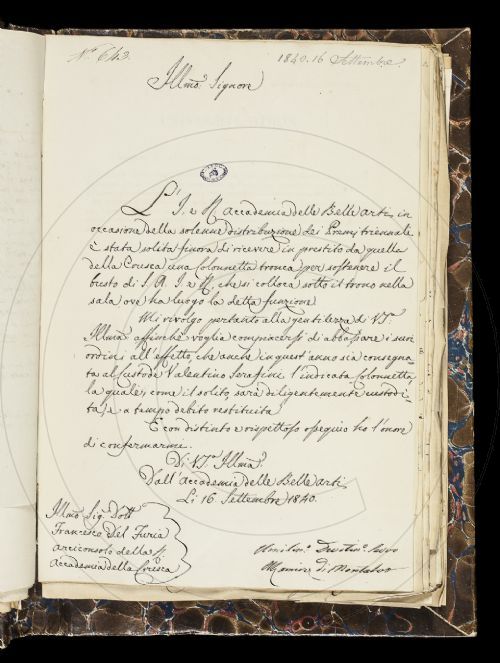 N.° 643.
1840. 16 Settembre.
Illmo. Signore
L'I. e R. Accademia delle Belle Arti, in
occasione della solenne distribuzione dei Premj triennale
è stata solita finora di ricevere in prestito da quella
della Crusca una Colonnetta tronca per sostenere il
busto di S. A. I. e R., che si colloca sotto il trono nella
sala ove ha luogo la detta funzione
Mi rivolgo pertanto alla gentilezza di V.S.
Illma. affinchè voglia compiacersi di abbassare i suoi
ordini all'effetto, che anche in quest'anno sia consegna-
ta al Custode Valentino Serafini l'indicata Colonnetta,
la quale, come il solito sarà diligentemente custodi-
ta, e a tempo debito restituita
E con distinto e rispettoso ossequio ho l'onore
di confermarmi.
Di V.S. Illma.
Dall'Accademia delle Belle Arti
Li 16 Settembre 1840.
Illmo. Sig. Dott.
Francesco Del Furia
Arciconsolo della R.
Accademia della Crusca
Umiliss.° Devotiss.° Servo
Ramirez Di Montalvo